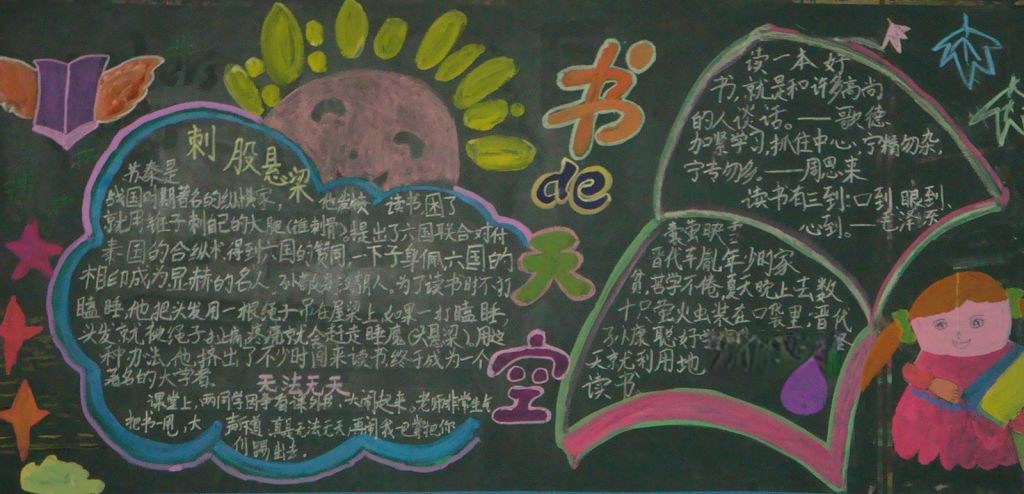 刺股悬梁
苏秦是
战国时期著名的纵横家,他坐读书困了
就用锥子刺自己的大腿(锥刺骨)提出了六国联合对付
秦国的合纵术,得到六国的赞同,一下子身佩六国的
相印成为显赫的名人。人,为了读书时不打
瞌睡,他把头发用一根绳子吊在屋梁上,如果一打瞌睡
头发就被绳子扯痛疼痛就会赶走睡魔(头悬梁)用这
种办法,他挤出了不少时间来读书终于成为一个
著名的大学者
无法无天
课堂上,两同学因争看课外书大闹起来。老师非常生气
把书一甩,大声道真是无法无天再闹我把你
们踢出去.
书
de
天
空
读一本好
书,就是和许多高尚
的人谈话。——歌德
加紧学习,抓住中心,宁精勿杂,
宁专勿多。——周恩来
读书有三到:口到,眼到,
心到。——毛泽东
囊萤映雪
晋代车胤年少时家
贫,苦学不倦,夏天晚上去数
十只萤火虫装在口袋里;晋代
孙康聪好学冬
天就利用地
读书